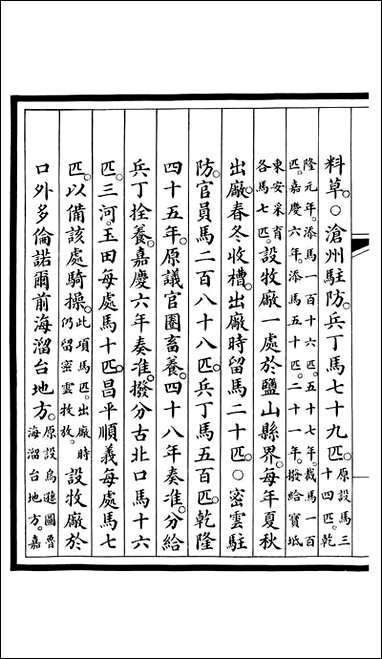 料草。○滄州駐防。兵丁馬七十九匹。原設馬三十四匹。乾
隆元年。添馬一百十六匹。五十七年。裁馬一百
匹。嘉慶六年。添馬五十匹。二十一年。撥給寶坻
東安采育
各馬七匹。設牧廠一處於鹽山縣界。每年夏秋
出廠。春冬收槽。出廠時留馬二十匹。○密雲駐
防。官員馬二百八十八匹。兵丁馬五百匹。乾隆
四十五年。原議官圈畜養。四十八年奏准。分給
兵丁拴養。嘉慶六年奏准。撥分古北口馬十六
匹。三河。玉田每處馬十匹。昌平順義每處馬七
匹。以備該處騎操。此項馬匹。出廠時仍留密雲牧放。設牧廠於
口外多倫諾爾前海溜台地方。原設烏遜圖魯海溜台地方。嘉